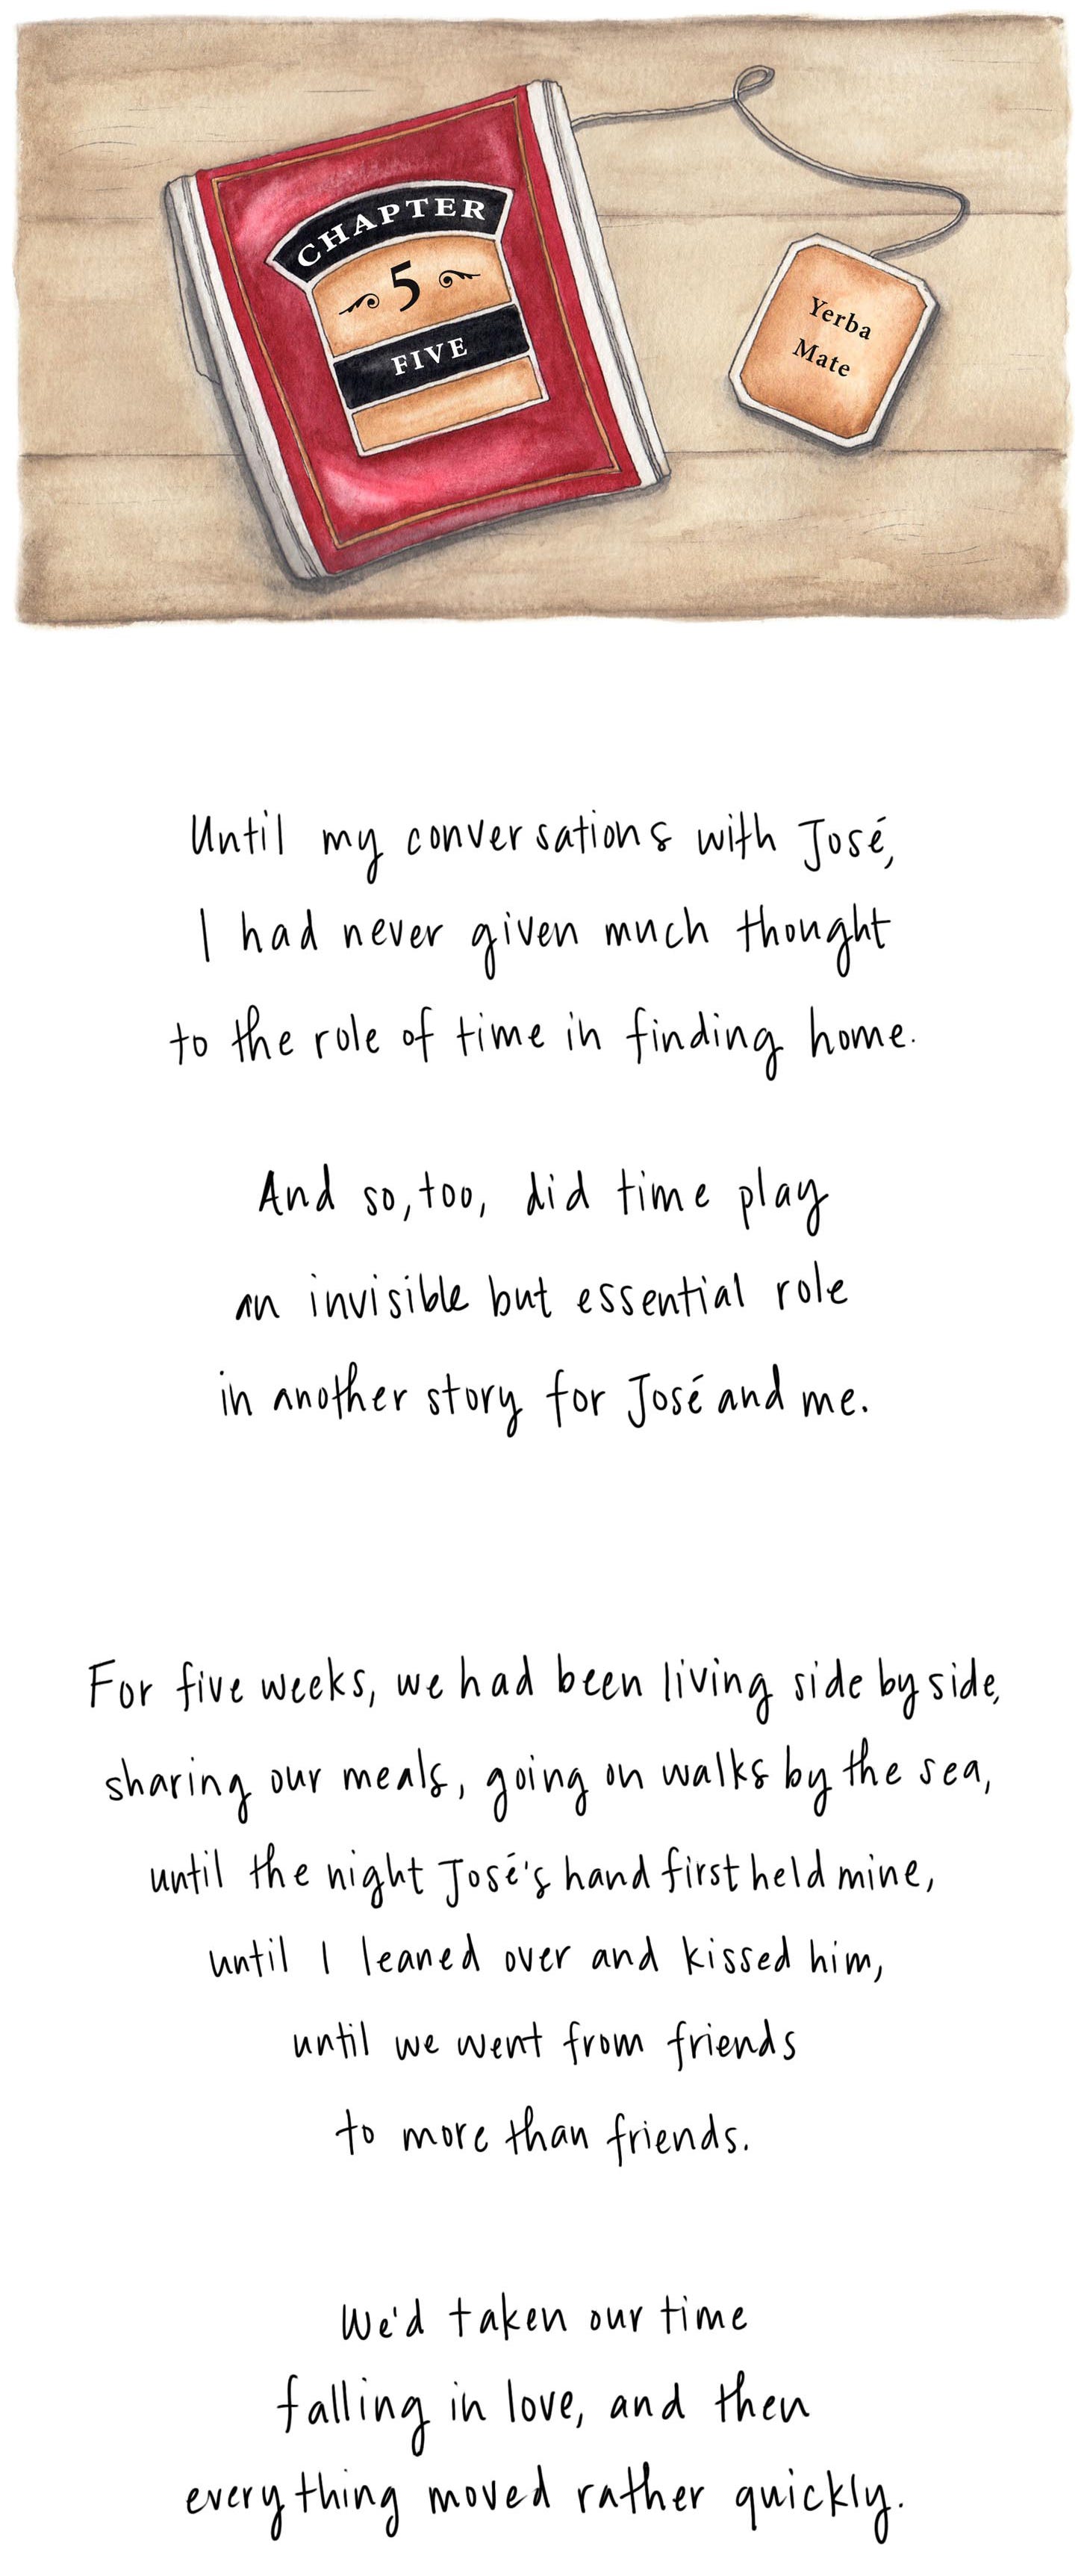 CHAPTER
5
FIVE
Yerba
Mate
Until my conversations with José,
I had never given much thought
to the role of time in finding home.
And so, too, did time play
an invisible but essential role
in another story for José and me.
For five weeks, we had been living side by side,
sharing our meals, going on walks by the sea,
until the night José's hand first held mine,
until I leaned over and kissed him,
until we went from friends
to more than friends.
We'd taken our time
falling in love, and then
everything moved rather quickly.